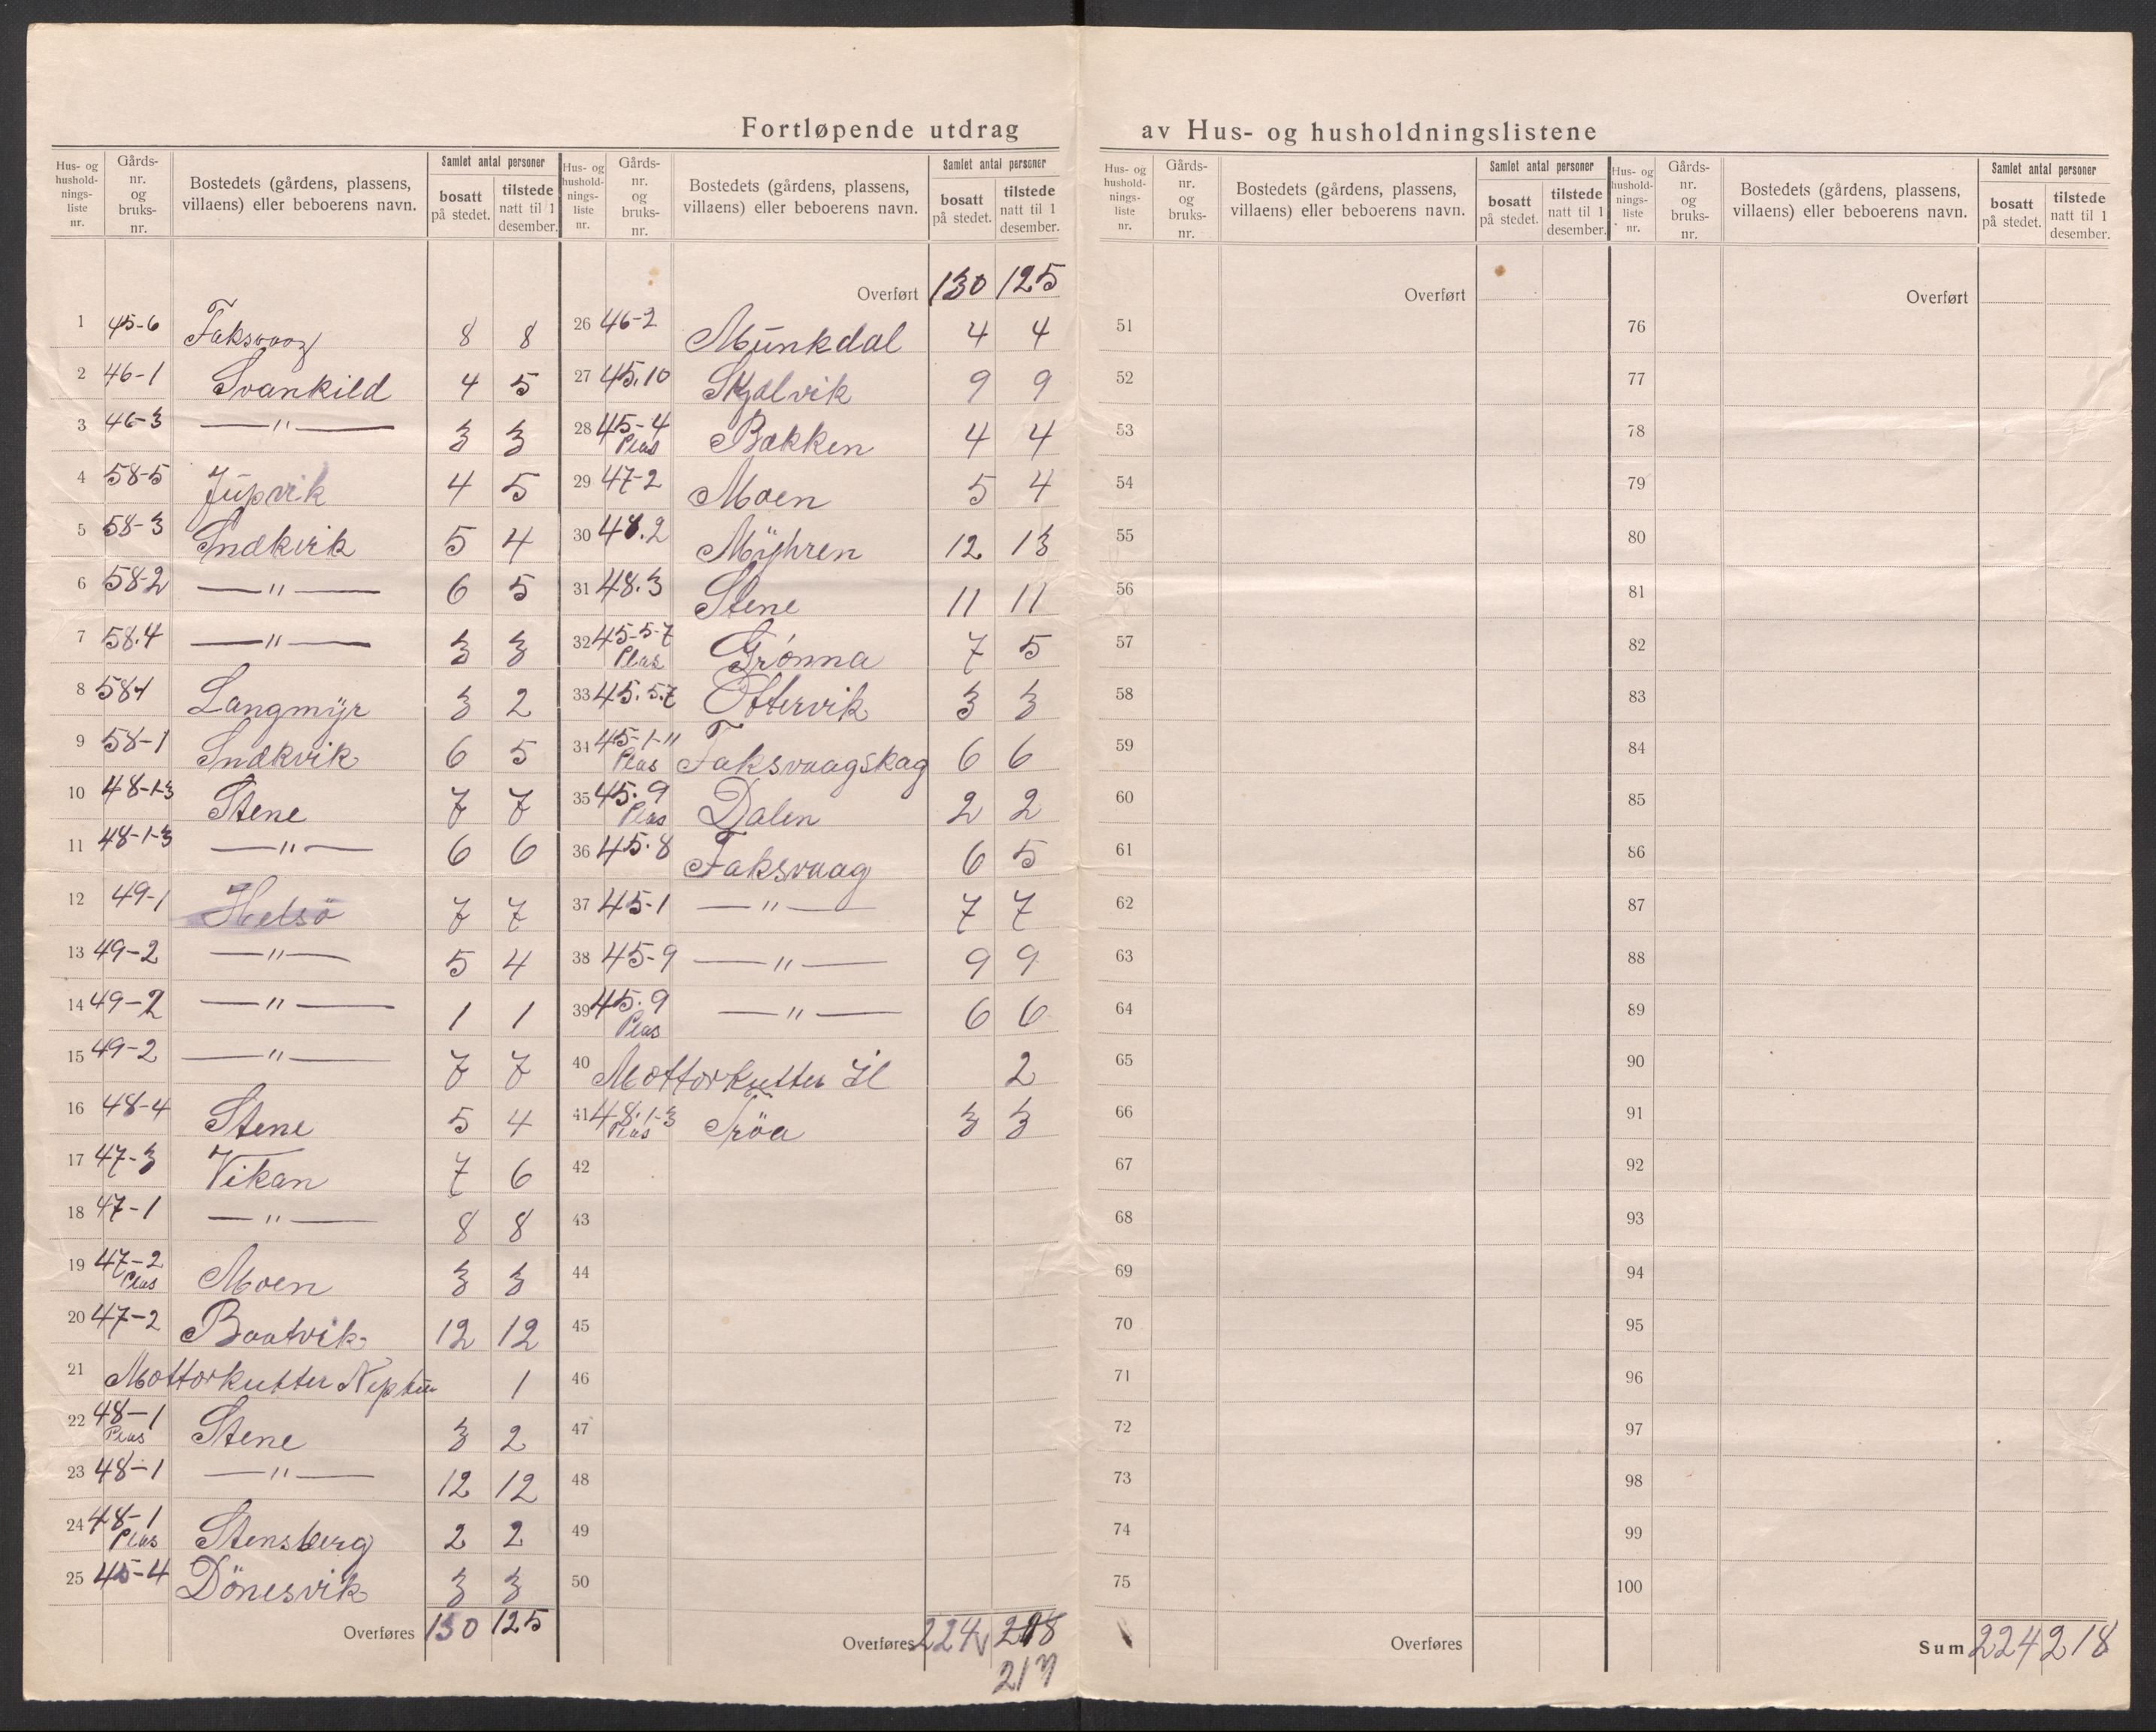 Fortløpende utdrag av Hus- og husholdningslistene
Hus- og husholdnings-liste nr. Gårds-nr. og bruks-nr. Bostedets (gårdens, plassens, villaens) eller beboerens navn. Samlet antal personer bosatt på stedet. tilstede natt til 1 desember.
1 45-6 Faksvaag 8 8
2 46-1 Svankild 4 5
3 46-3 —"— 3 3
4 58-5 Jupvik 4 5
5 58-3 Indkvik 5 4
6 58-2 —"— 6 5
7 58.4 —"— 3 3
8 58-1 Langmÿr 3 2
9 58-1 Indkvik 6 5
10 48-1-3 Stene 7 7
11 48-1-3 —"— 6 6
12 49-1 Helsö 7 7
13 49-2 —"— 5 4
14 49-2 —"— 1 1
15 49-2 —"— 7 7
16 48-4 Stene 5 4
17 47-3 Vikan 7 6
18 47-1 —"— 8 8
19 47-2 Plas Moen 3 3
20 47-2 Baatvik 12 12
21 Mottorkutter Neptun 1
22 48-1 Plas Stene 3 2
23 48-1 —"— 12 12
24 48-1 Plas Stensberg 2 2
25 45-4 Dönesvik 3 3
Overføres 130 125
Hus- og husholdnings-liste nr. Gårds-nr. og bruks-nr. Bostedets (gårdens, plassens, villaens) eller beboerens navn. Samlet antal personer bosatt på stedet. tilstede natt til 1 desember.
Overført 130 125
26 46-2 Munkdal 4 4
27 45.10 Skjølvik 9 9
28 45-4 Plas Bakken 4 4
29 47-2 Moen 5 4
30 48.2 Mÿhren 12 13
31 48.3 Stene 11 11
32 45-5-7 Plas Grønna 7 5
33 45.5.7 Ottervik 3 3
34 45-1-11 Plas Faksvaagskag 6 6
35 45.9 Plas Dalen 2 2
36 45.8 Faksvaag 6 5
37 45-1 —"— 7 7
38 45-9 —"— 9 9
39 45.9 Plas —"— 6 6
40 Mottorkutter Il 2
41 48.1-3 Plas Trøa 3 3
42
43
44
45
46
47
48
49
50
Overføres 224 218
217
Hus- og husholdnings-liste nr. Gårds-nr. og bruks-nr. Bostedets (gårdens, plassens, villaens) eller beboerens navn. Samlet antal personer bosatt på stedet. tilstede natt til 1 desember.
Overført
51
52
53
54
55
56
57
58
59
60
61
62
63
64
65
66
67
68
69
70
71
72
73
74
75
Overføres
Hus- og husholdnings-liste nr. Gårds-nr. og bruks-nr. Bostedets (gårdens, plassens, villaens) eller beboerens navn. Samlet antal personer bosatt på stedet. tilstede natt til 1 desember.
Overført
76
77
78
79
80
81
82
83
84
85
86
87
88
89
90
91
92
93
94
95
96
97
98
99
100
Sum 224 218